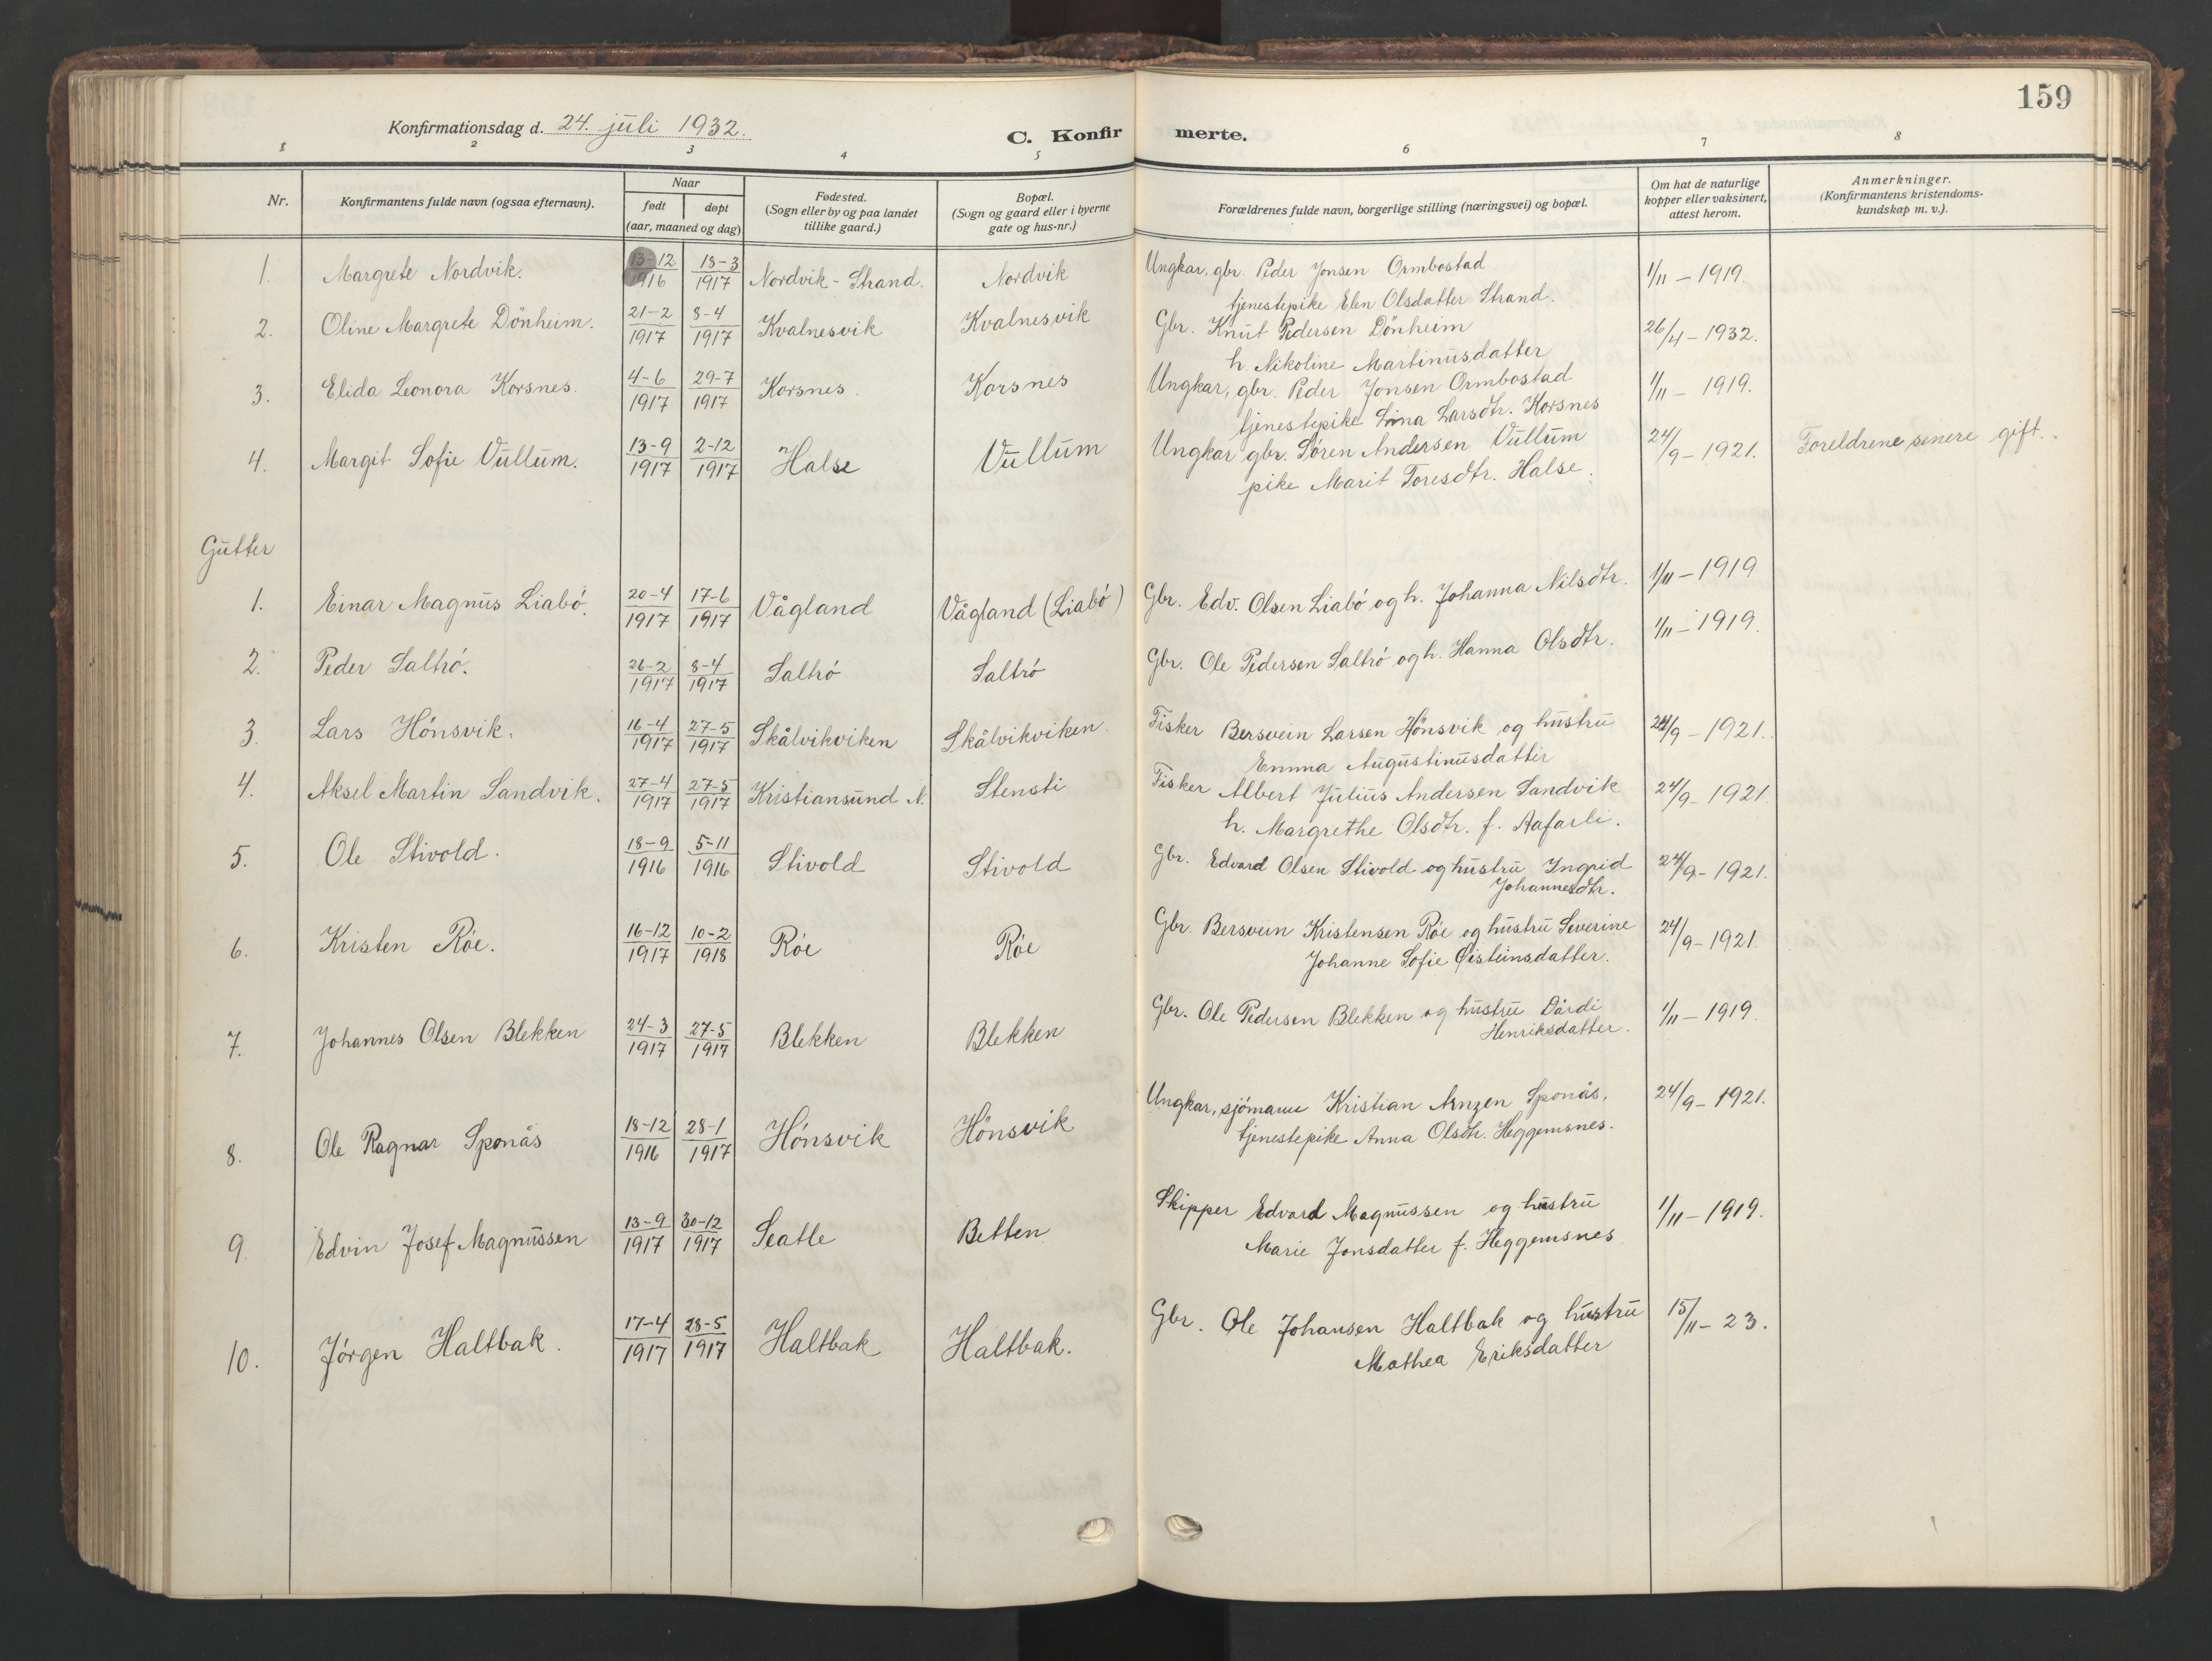 159
Konfirmationsdag d. 24. juli 1932.
C. Konfirmerte.
1 2 3 4 5 6 7 8
Nr. Konfirmantens fulde navn (ogsaa efternavn). Naar født døpt (aar, maaned og dag) Fødested. (Sogn eller by og paa landet tillike gaard.) Bopæl. (Sogn og gaard eller i byerne gate og hus-nr.) Forældrenes fulde navn, borgerlige stilling (næringsvei) og bopæl. Om hat de naturlige kopper eller vaksinert, attest herom. Anmerkninger. (Konfirmantens kristendomskundskap m. v.).
1. Margrete Nordvik. 13-12 1916 18-3 1917 Nordvik - Strand. Nordvik Ungkar, gbr. Peder Jonsen Ormbostad 1/11 - 1919.
tjenestepike Elen Olsdatter Strand.
2. Oline Margrete Dönheim. 21-2 1917 8-4 1917 Kvalnesvik Kvalnesvik Gbr. Knut Pedersen Dönheim 26/4 - 1932.
h. Nikoline Martinusdatter
3. Elida Leonora Korsnes. 4-6 1917 29-7 1917 Korsnes. Korsnes Ungkar, gbr. Peder Jonsen Ormbostad 1/11 - 1919.
tjenestepike Lina Larsdtr. Korsnes
4. Margit Sofie Vullum. 13-9 1917 2-12 1917 Halse Vullum Ungkar gbr. Søren Andersen Vullum 24/9 - 1921. Foreldrene senere gift.
pike Marit Toresdtr. Halse.
Gutter
1. Einar Magnus Liabó. 20-4 1917 17-6 1917 Vågland Vågland (Liabó) Gbr. Edv. Olsen Liabó og h. Johanna Nilsdtr. 1/11 - 1919
2. Peder Saltró. 26-2 1917 8-4 1917 Saltró Saltró Gbr. Ole Pedersen Saltró og h. Hanna Olsdtr. 1/11 - 1919.
3. Lars Hónsvik. 16-4 1917 27-5 1917 Skålvikviken Skålvikviken. Fisker Bersvein Larsen Hönsvik og hustru 24/9 - 1921.
Emma Augustinusdatter
4. Aksel Martin Sandvik. 27-4 1917 27-5 1917 Kristiansund N. Stensti Fisker Albert Julius Andersen Sandvik 24/9 - 1921.
h. Margrethe Olsdtr. f. Aafarli.
5. Ole Stivold. 18-9 1916 5-11 1916 Stivold Stivold Gbr. Edvard Olsen Stivold og hustru Ingrid 24/9 - 1921.
Johannesdtr.
6. Kristen Róe. 16-12 1917 10-2 1918 Róe Róe Gbr. Bersvein Kristensen Róe og hustru Severine 24/9 - 1921.
Johanne Sofie Øisteinsdatter.
7. Johannes Olsen Blekken 24-3 1917 27-5 1917 Blekken Blekken Gbr. Ole Pedersen Blekken og hustru Dårdi 1/11 - 1919.
Henriksdatter.
8. Ole Ragnar Sponås 18-12 1916 28-1 1917 Hónsvik Hönsvik Ungkar, sjómann Kristian Arnzen Sponås, 24/9 - 1921.
tjenestepike Anna Olsdtr. Heggemsnes.
9. Edvin Josef Magnussen 13-9 1917 30-12 1917 Seatle Betten Skipper Edvard Magnussen og hustru 1/11 - 1919.
Marie Jonsdatter f. Heggemsnes
10. Jórgen Haltbak. 17-4 1917 28-5 1917 Haltbak Haltbak. Gbr. Ole Johansen Haltbak og hustru 15/11 - 23.
Mathea Eriksdatter